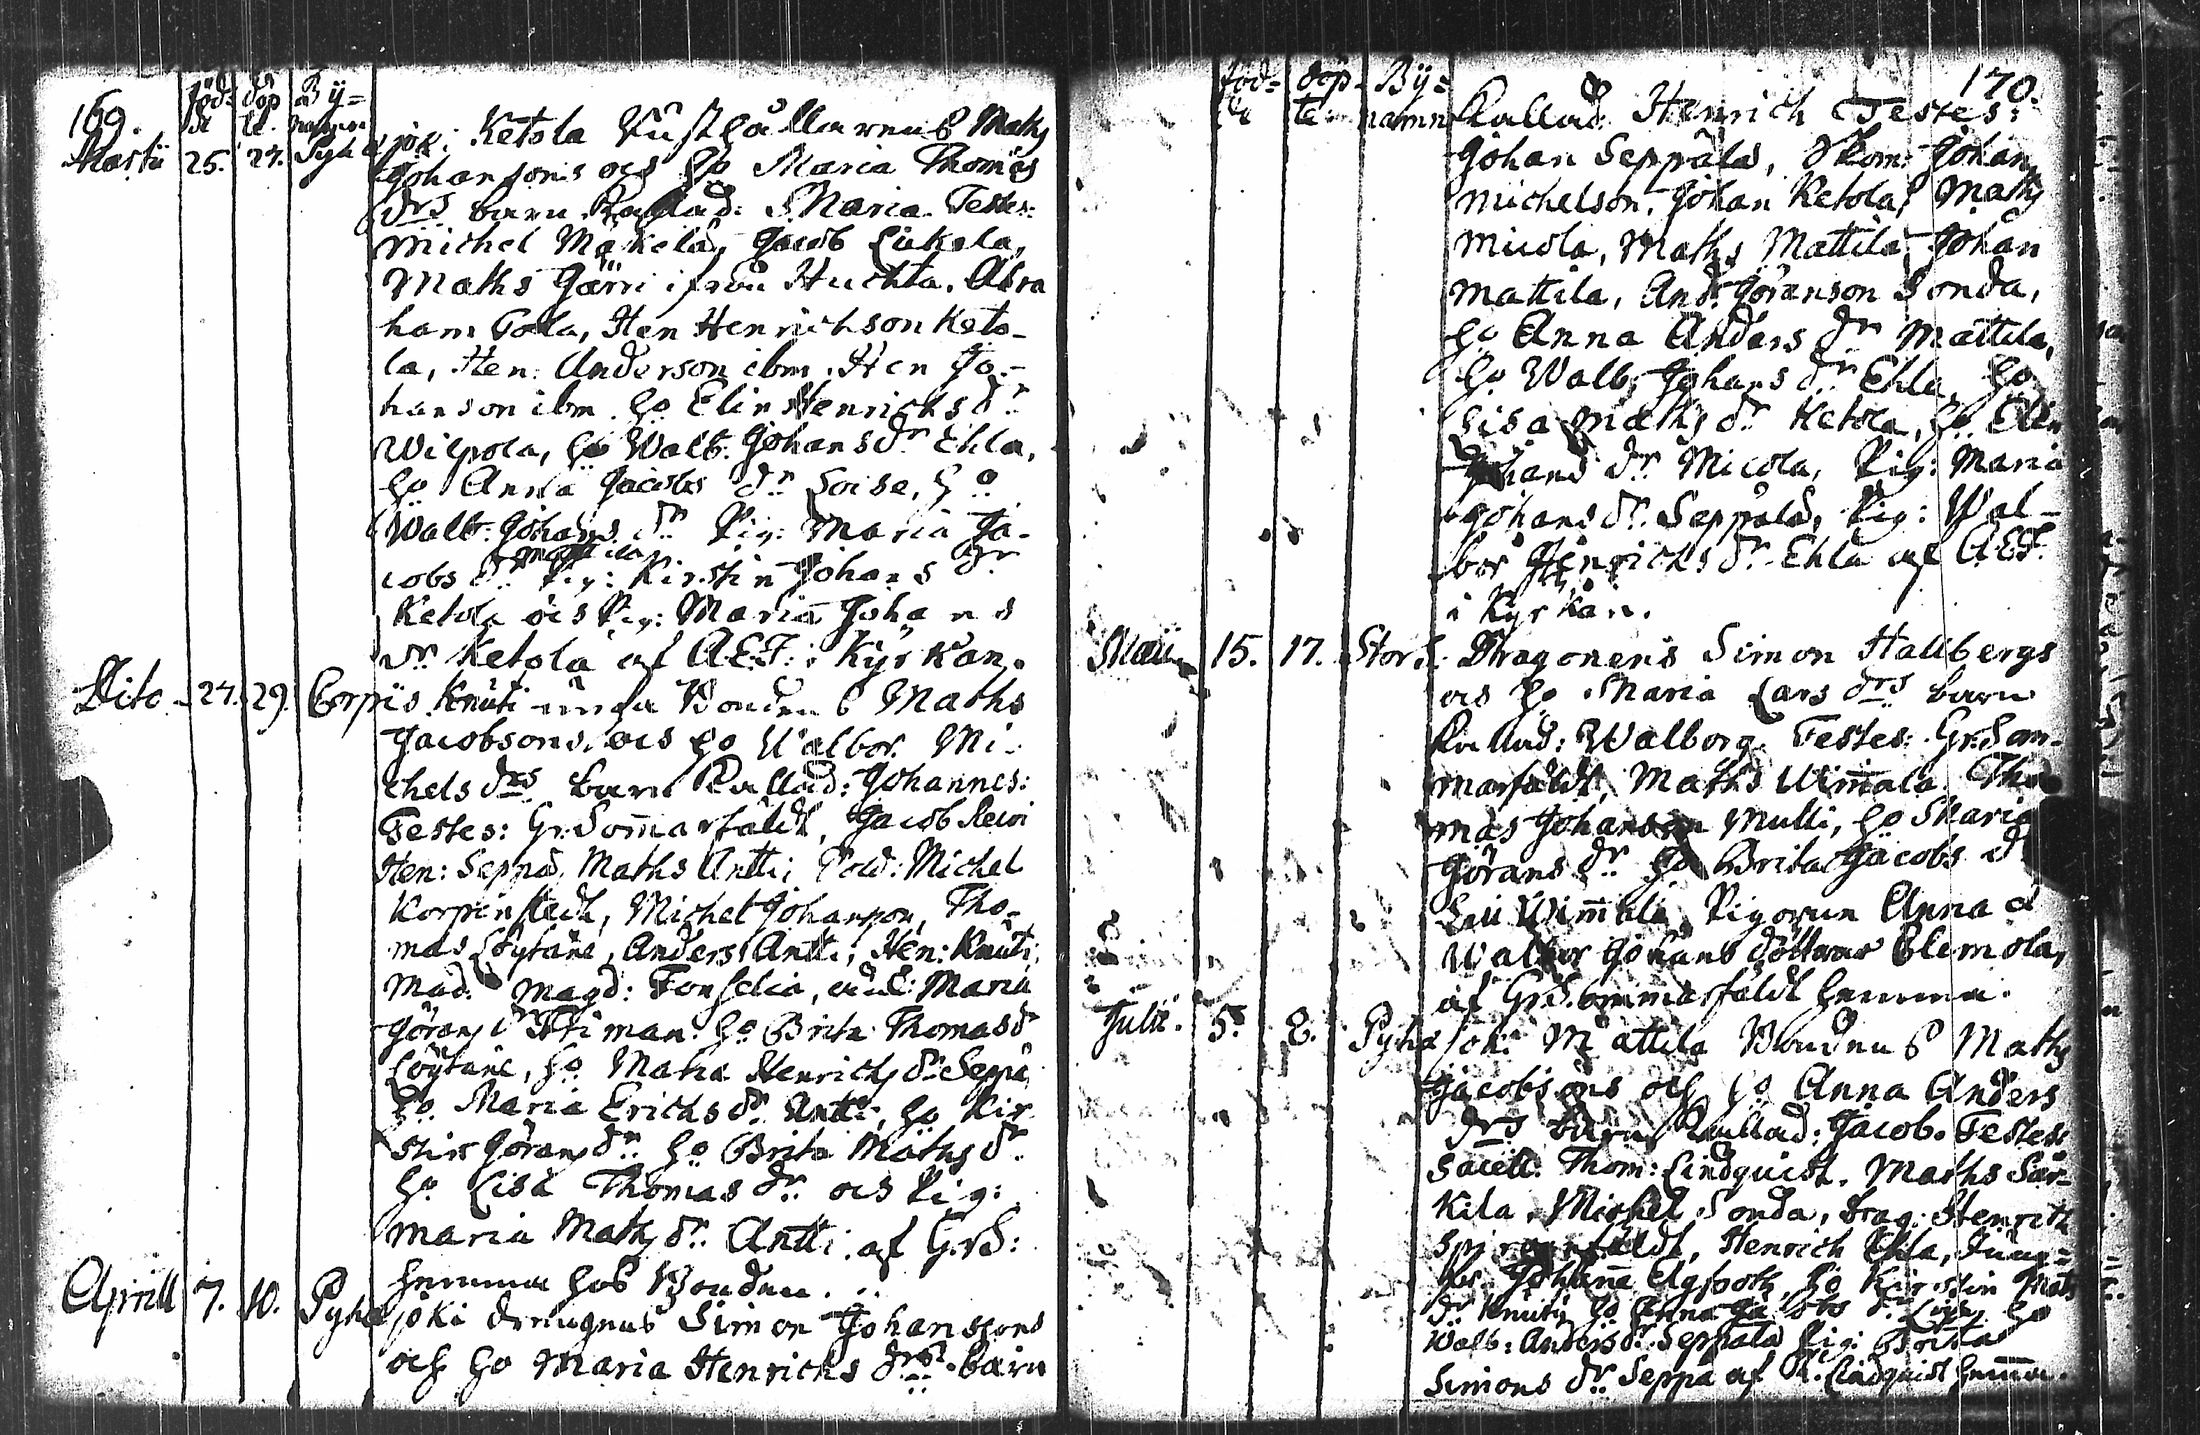 169. föd= döp By=
de te. namn
Martii 25. 27. Pyhä joki Ketola Rusthållarens Maths
Johansons och ho Maria Thomæ
drs barn Kallad: Maria. Testes:
Michel Mäkelä, Jacob Liukola,
Maths Järri ifrån Huchta. Abra
ham Tola, Hen Henrichson Keto-
la, Hen: Anderson ibm. Hen Jo-
hanson ibm. ho Elin Henrichs dr
Wilpola, ho Walb. Johans dr Ehla,
ho Anna Jacobs dr Soise, ho
Walb. Johans dr Pig: Maria Ja-
cobs dr Pig: Kirstin Johans dr
Ketola och Pig: Maria Johans
dr Ketola af A.E.F. i Kyrkan.
Dito 27. 29. Corpis Knuti unga Bondens Maths
Jacobsons och ho Walbor Mi-
chels drs barn Kallad: Johannes:
Testes: Gr. Som̄arfäldt, Jacob
Hen: Seppä, Maths Antti; Michel
Korpinstedt, Michel Johanson, Tho-
mas Löytäne, Anders Antti, Hen: Knuti;
Mad. Magd: Fonselia, Maria
Görans dr ho Brita Thomas dr
Löytäne, ho Maria Henrichs dr Seppä
ho Maria Erichs dr Antti, ho Kir
stin Görans dr ho Brita Maths dr
ho Lisa Thomas dr och Pig:
Maria Maths dr Antti af Gr.S:
hemma hos Bonden.
Aprill 7. 10. Pyhä joki drengens Simon Johanssons
och ho Maria Henrichs drs barn
föd= döp- By= 170.
de te namn Kallad: Henrich Testes:
Johan Seppälä, Skom: Johan
Michelson, Johan Ketola, Maths
Micola, Maths Mattila, Johan
Mattila, And. Göranson Sonda,
ho Anna Anders dr Mattila,
ho Walb. Johans dr Ehla, ho
Lisa Maths dr Ketola, ho Elin
Johans dr Micola, Pig: Maria
Johans dr Seppälä, Pig: Wal-
bor Henrichs dr Ehla af A.E.F.
i Kyrkan.
Maii 15. 17. Stor S. Dragonens Simon Hallbergs
och ho Maria Lars drs barn
Kallad: Walborg. Testes: Gr. Som-
marfäldt, Maths Wim̄ala. Tho
mas Johanson Mulli, ho Maria
Görans dr ho Brita Jacobs dr
Wim̄ala, Pigorna Anna o
Walbor Johans döttrar Clemola,
af Gr. Sommarfäldt hemma.
Julii. 5. 8. Pyhä joki Mattila Bondens Maths
Jacobsons och ho Anna Anders
drs barn Kallad: Jacob. Testes
Sacell: Thom: Lindquist. Maths Sär-
kilä, Michel Sonda, Drag: Henrich
Henrich Ehla, Jung=
fr. Johanna ho Kirstin Mats
dr Knuti, ho Anna dr ho
Walb: Anders dr Seppälä Pig: Brita
Simons dr Seppä af Lindquist hem̄a.